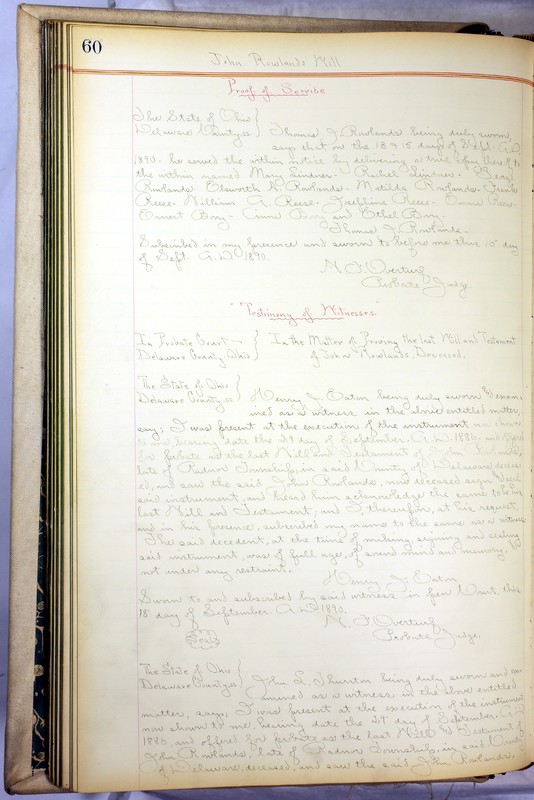 60
John Rowlands Will
Proof of Service
The State of Ohio
Delaware County, ss } Thomas J. Rowlands being duly sworn,
says that on the 18 & 15 days of Sept. A.D.
1890. he served the within notice by delivering a true copy thereof to
the within named Mary Lindner. Rachel Lindner.
Rowlands Elsworth H. Rowlands. Matilda Rowlands. Frank
Reese. William A. Reese. Josephine Reese. Reese.
Ernest Bony. Bony and Ethel Bony.
Thomas J. Rowlands.
Subscribed in my presence and sworn to before me this 15 day
of Sept. A.D. 1890.
N. F. Overturf
Probate Judge.
"Testimony of Witnesses."
In Probate Court
Delaware County Ohio } In the Matter of Proving the last Will and Testament
of John Rowlands, Deceased.
The State of Ohio
Delaware County ss. } Henry J. Eaton being duly sworn & exam-
ined as a witness in the above entitled matter,
say; I was present at the execution of the instrument now shown
to me bearing date the 29 day of September. A.D. 1886. and offered
for probate as the last Will and Testament of John Rowlands,
late of Radnor Township, in said County of Delaware deceas-
ed, and saw the said John Rowlands, now deceased sign & seal
said instrument, and heard him acknowledge the same to be his
last Will and Testament; and I, thereupon, at his request,
and in his presence, subscribed my name to the same as a witness
The said decedent, at the time of making, signing and sealing
said instrument, was of full age, of sound mind and memory, &
not under any restraint.
Henry J. Eaton
Sworn to and subscribed by said witness in open Court this
18 day of September. A.D. 1890.
N. F. Overturf
Seal
Probate Judge.
The State of Ohio
Delaware County ss } John L. Thurston being duly sworn and ex-
amined as a witness in the above entitled
matter, says, I was present at the execution of the instrument
now shown to me, bearing date the 29 day of September. A.D.
1886, and offered for probate as the last Will & Testament of
John Rowlands, late of Radnor Township, in said County
of Delaware, deceased, and saw the said John Rowlands,